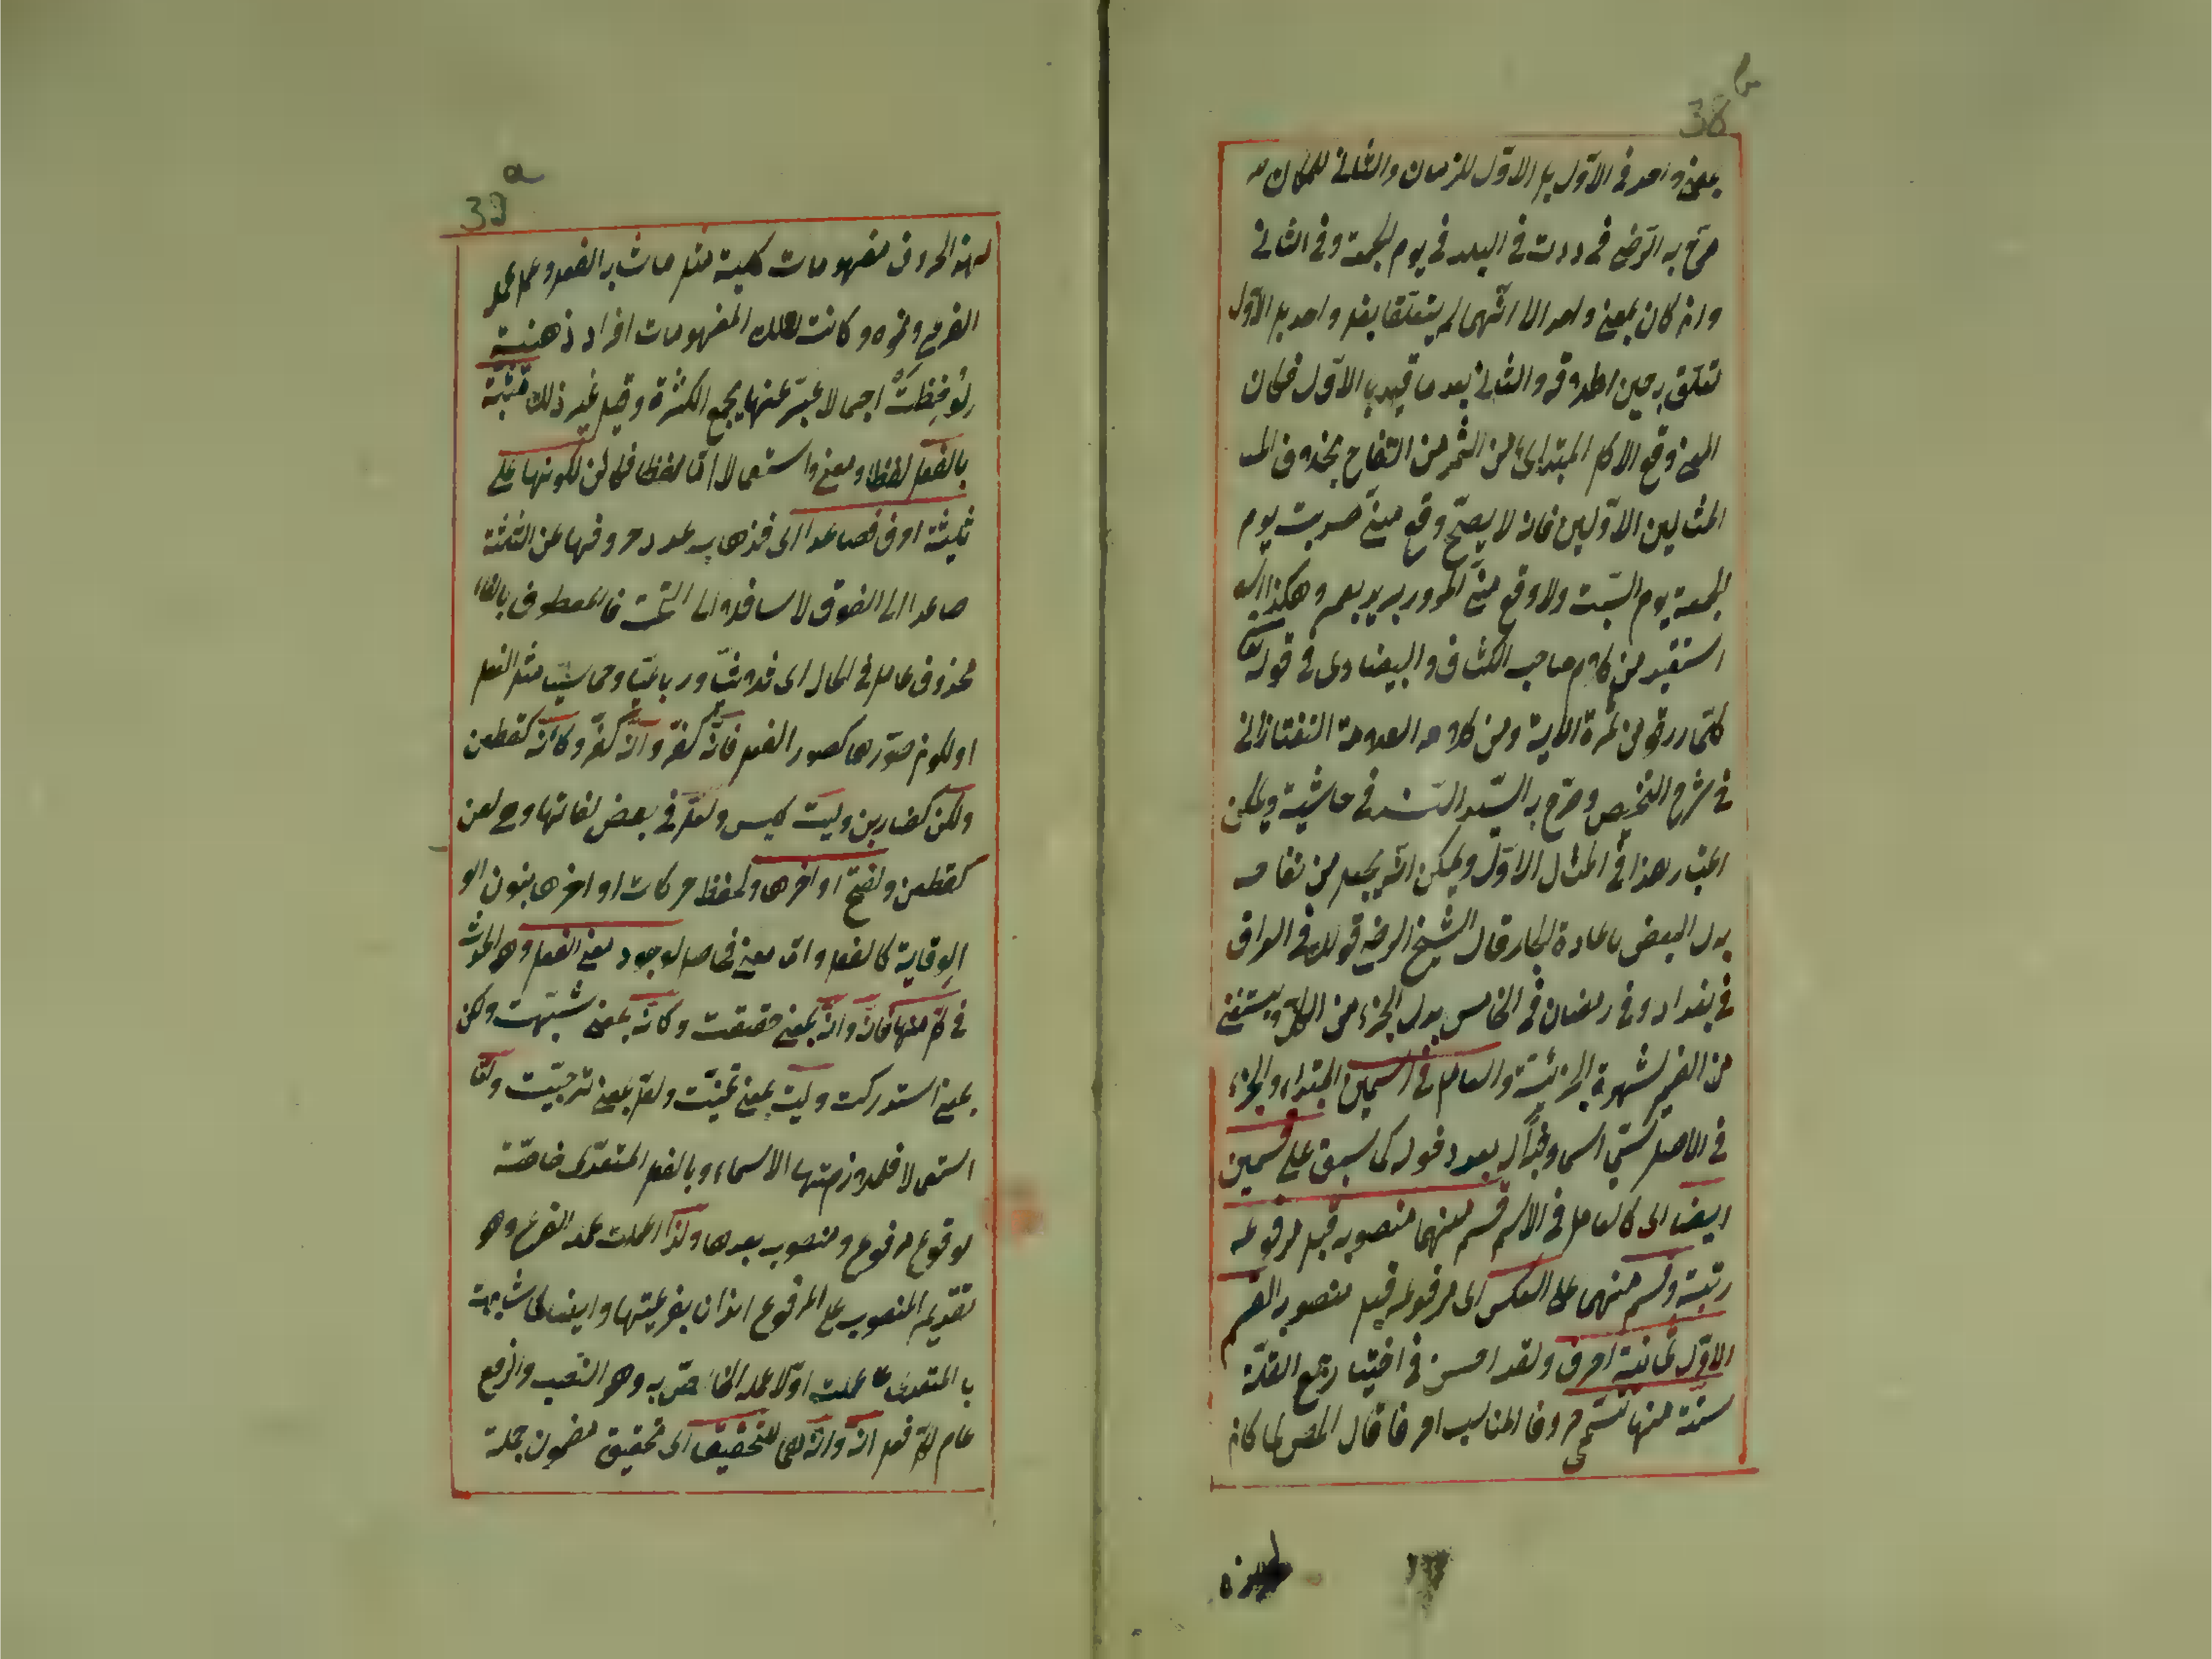 38 b
بمعنى واحد في الاوّل بل الاوّل للزمان والثاني للمكان
صرّح به الرّضي في ددت في البلد في يوم الجمعة وفي الثاني
وان كان بمعنى واحد الا انّهما لم يتعلّقا بفعل واحد بل الاوّل
تعلّق به حين اطلاقه والثاني بعد ما قيد بالاوّل فكان
المعنى وقع الاكل المبتدا من الثمر من التفاح بخلاف
المثالين الاوّلين فانه لا يصحّ وقع منّي ضربت يوم
الجمعة يوم السّبت ولا وقع منّي المرور بزيد بعمرو هكذا
استفيد من كلام صاحب الكشاف والبيضاوى في قوله تعا
كلّما رزقوا من ثمرة الاية ومن كلام العلامة التفتازاني
في شرح التلخيص وصرّح به السّيد السّند في حاشية ويمكن
اعتبار هذا في المثال الاوّل ويمكن انه يجعل من تفاحه
بدل البعض باعادة الجار قال الشيخ الرضي قولك في العراق
في بغداد وفي رمضان في الخامس بدل الجزء من الكلّ ويستغنى
من الضمير لشهرة الجزئيّة والعامل في اسمين المبتداء والخبر
في الاصل يسمّى اسما وخبرا له بعد دخوله كما سبق على قسمين
ايضا اى كالعامل في الاسم قسم منهما منصوبه قبل مرفوعه
رتبة وقسم منهما على العكس اى مرفوعه قبل منصوبه القسم
الاوّل ثمانية احرف ولقد احسن في اختيار جمع القلّة
ستّة منها تسمّى حروفا المناسب احرفا قال المص لما كان
لهذه
39 a
لهذه الحروف مفهومات كلية مثل مشابه الفعل وعمل عمل
الفرع ونحوه وكانت لتلك المفهومات افراد ذهنية
لوحظت اجمالا عبّر عنها بجمع الكثرة وقيل غير ذلك مشبّهة
بالفعل لفظا ومعنى واستعمالا امّا لفظا فلكونها على
ثلثة احرف فصاعدا اى فذهب عدد حروفها عن الثلثة
صاعدا الى الفوق لا سافلا الى التحت فالمعطوف بالفاء
محذوف عامل في الحال اى ثلاثيّا ورباعيّا وخماسيّا مثل الفعل
او لكون صورها كصور الفعل فانّ كفرّ وانّ كفرّ وكانّ كقطعن
ولكنّ كضاربن وليت كليس ولعلّ في بعض لغاتها وهي لعن
كقطعن ولفتح اواخرها ولحفظ حركات اواخرها بنون
الوقاية كالفعل وامّا معنى فحاصل لوجود معنى الفعل وهو الحدث
في كلّ منها فانّ وانّ بمعنى حققت وكانّ بمعنى شبّهت ولكن
بمعنى استدركت وليت بمعنى تمنّيت ولعلّ بمعنى ترجّيت وامّا
استعمالا فلملازمتها الاسماء وبالفعل المتعدّى خاصّة
لوقوع مرفوع ومنصوب بعدها ولذا اعملت عمله الفرع وهو
تقديم المنصوب على المرفوع ايذانا بفرعيّتها وايضا لمّا شابهت
بالمتعدى عملت اوّلا عمله الخاصّ به وهو النّصب والرفع
عام لكلّ فعل انّ وانّ هما للتحقيق اى تحقيق مضمون جملة